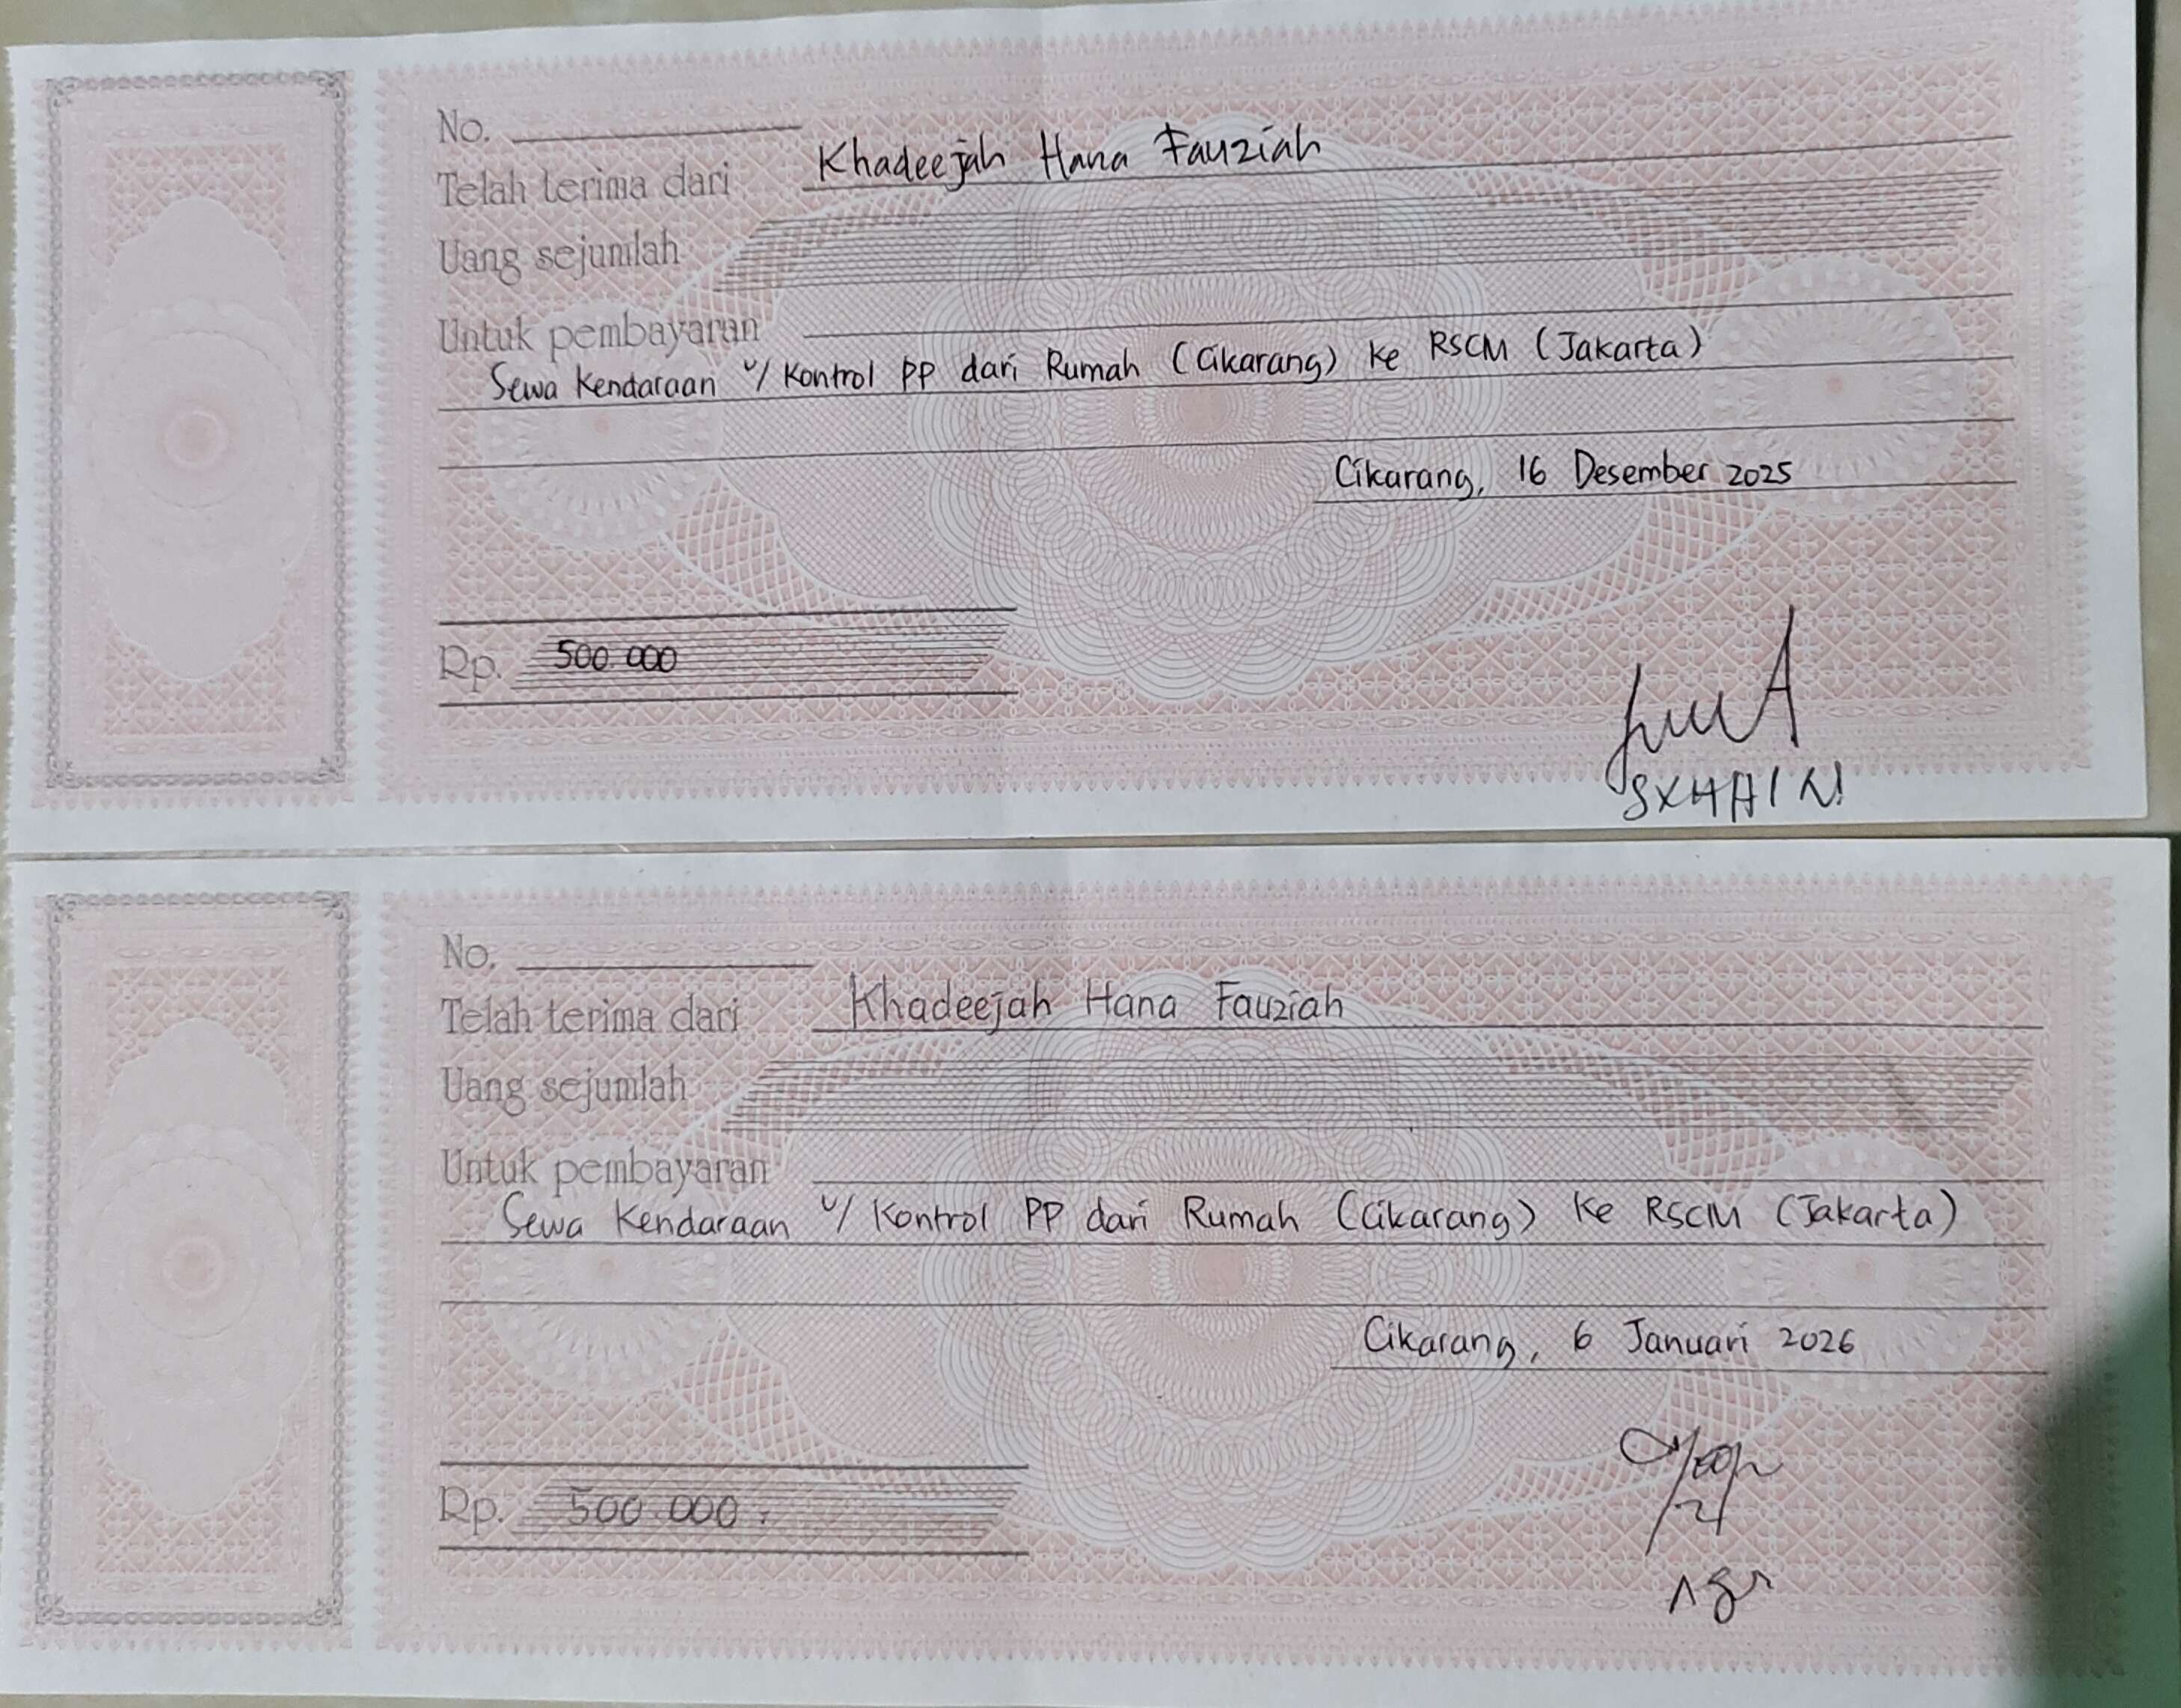 No.
Telah terima dari Khadeejah Hana Fauziah
Uang sejumlah
Untuk pembayaran
Sewa Kendaraan u/ Kontrol PP dari Rumah (Cikarang) Ke RSCM (Jakarta)
Cikarang, 16 Desember 2025
Rp. 500 000
No.
Telah terima dari Khadeejah Hana Fauziah
Uang sejumlah
Untuk pembayaran
Sewa Kendaraan u/ Kontrol PP dari Rumah (Cikarang) Ke RSCM (Jakarta)
Cikarang, 6 Januari 2026
Rp. 500.000